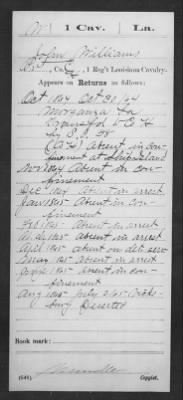 W | 1 Cav. | La.
John Williams
Co. , 1 Reg't Louisiana Cavalry.
Appears on Returns as follows:
Oct 1864 Oct 31/64
Morganza La
Transfer to Co H
by S.O. 98
Absent in con-
finement at Ship Island
Nov 1864 Absent in con-
finement
Dec 1864 absent in arrest
Jan 1865 Absent in con-
finement
Feb 1865 absent in arrest
Mch 1865 absent in arrest
April 1865 absent on
May 1865 absent in arrest
June 1865 absent in con-
finement
Aug 1865 July 2/65 Vicks-
burg Deserted
Book mark:
(646)
Copyist.